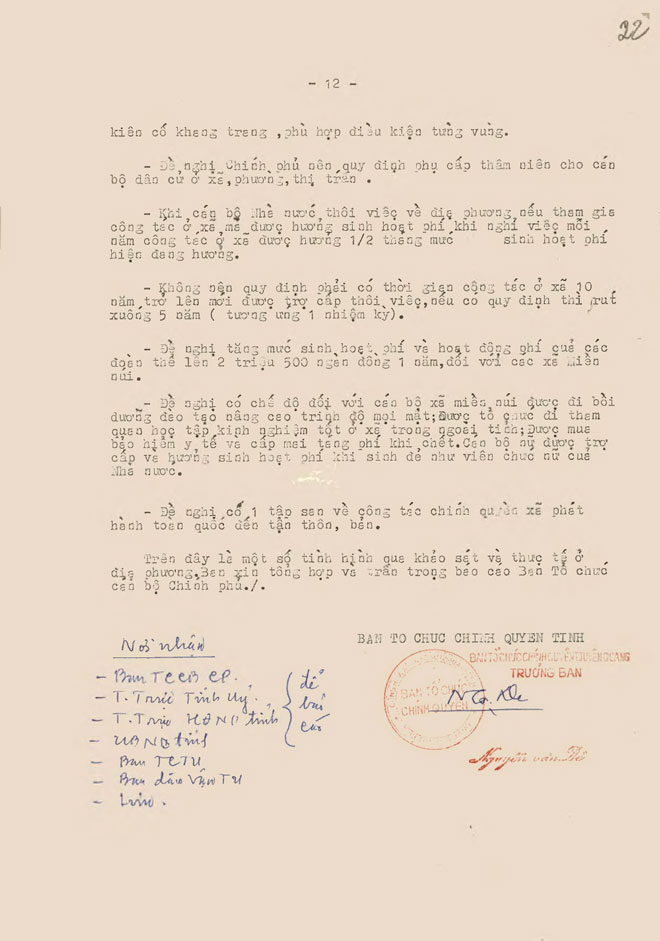 22
- 12 -
kiên cố khang trang ,phù hợp điều kiện từng vùng.
- Đề nghị Chính phủ nên quy định phụ cấp thâm niên cho cán
bộ dân cử ở xã,phường,thị trấn .
- Khi cán bộ Nhà nước thôi việc về địa phương nếu tham gia
công tác ở xã mà được hưởng sinh hoạt phí khi nghỉ việc mỗi
năm công tác ở xã được hưởng 1/2 tháng mức sinh hoạt phí
hiện đang hưởng.
- Không nên quy định phải có thời gian công tác ở xã 10
năm trở lên mới được trợ cấp thôi việc,nếu có quy định thì rút
xuống 5 năm ( tương ứng 1 nhiệm kỳ).
- Đề nghị tăng mức sinh hoạt phí và hoạt động phí của các
đoàn thể lên 2 triệu 500 ngàn đồng 1 năm,đối với các xã miền
núi.
- Đề nghị có chế độ đối với cán bộ xã miền núi được đi bồi
dưỡng đào tạo nâng cao trình độ mọi mặt;Được tổ chức đi tham
quan học tập kinh nghiệm tốt ở xã trong ngoài tỉnh;Được mua
bảo hiểm y tế và cấp mai táng phí khi chết.Cán bộ nữ được trợ
cấp và hưởng sinh hoạt phí khi sinh đẻ như viên chức nữ của
Nhà nước.
- Đề nghị có 1 tập san về công tác chính quyền xã phát
hành toàn quốc đến tận thôn, bản.
Trên đây là một số tình hình qua khảo sát và thực tế ở
địa phương,Ban xin tổng hợp và trân trọng báo cáo Ban Tổ chức
cán bộ Chính phủ./.
BAN TO CHUC CHINH QUYEN TINH
BAN TỔ CHỨC CHÍNH QUYỀN TUYÊN QUANG
TRƯỞNG BAN
BAN TỔ CHỨC
CHÍNH QUYỀN
Nguyễn văn Đề
Nơi nhận
- Ban TCCB CP.
- T. Trực Tỉnh ủy.
- T. Trực HĐND tỉnh
- UBND tỉnh
để
báo
cáo
- Ban TCTU
- Ban dân vận TU
- Lưu.